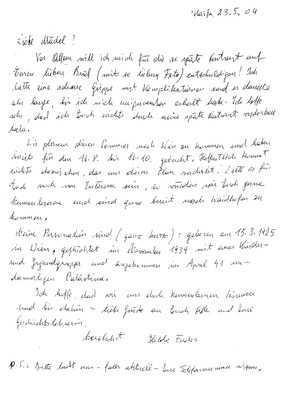 Haifa, 23.5.04
Liebe Mädel!
Vor Allem will ich mich für die so späte Antwort auf
Euren lieben Brief (mit so lieben Foto) entschuldigen! Ich
hatte eine schwere Grippe mit Komplikationen und es dauerte
sehr lange, bis ich mich einigermassen erholt habe. Ich hoffe
sehr, dass ich Euch nichts durch meine späte Antwort verdorben
habe.
Wir planen diesen Sommer nach Wien zu kommen und haben
bereits für den 16.8. bis 16.10. gebucht. Hoffentlich kommt
nichts dazwischen, das uns diesen Plan vernichtet. Sollte es für
Euch noch von Interesse sein, so würden wir Euch gerne
kennenlernen und sind gerne bereit nach zu
kommen.
Meine Personalien sind (ganz kurz): geboren am 15.3.1925
in Wien, geflüchtet im November 1939 mit einer Kinder-
und Jugendgruppe und angekommen im April 41 im
damaligen Palästina.
Ich hoffe, dass wir uns doch kennenlernen können
und bis dahin - liebe Grüße an Euch Alle und Eure
Geschichtslehrerin.
herzlichst
P.S.: Bitte teilt uns - falls aktuell - Eure Telefonnummer mit